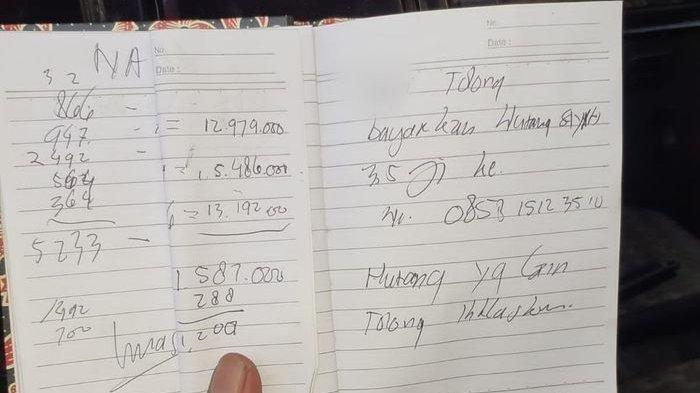 NA
3 2
No.
Date :
866 -
947 -
2492 -
564
364
5233 -
= 12.979.000
= 5.486.000
= 13.192.00
1 587.000
288
1392
700
200
No.
Date :
Tolong
bayarkan Hutang
35 ke
0853 1512 35
Hutang yg lain
Tolong ikhlaskan.